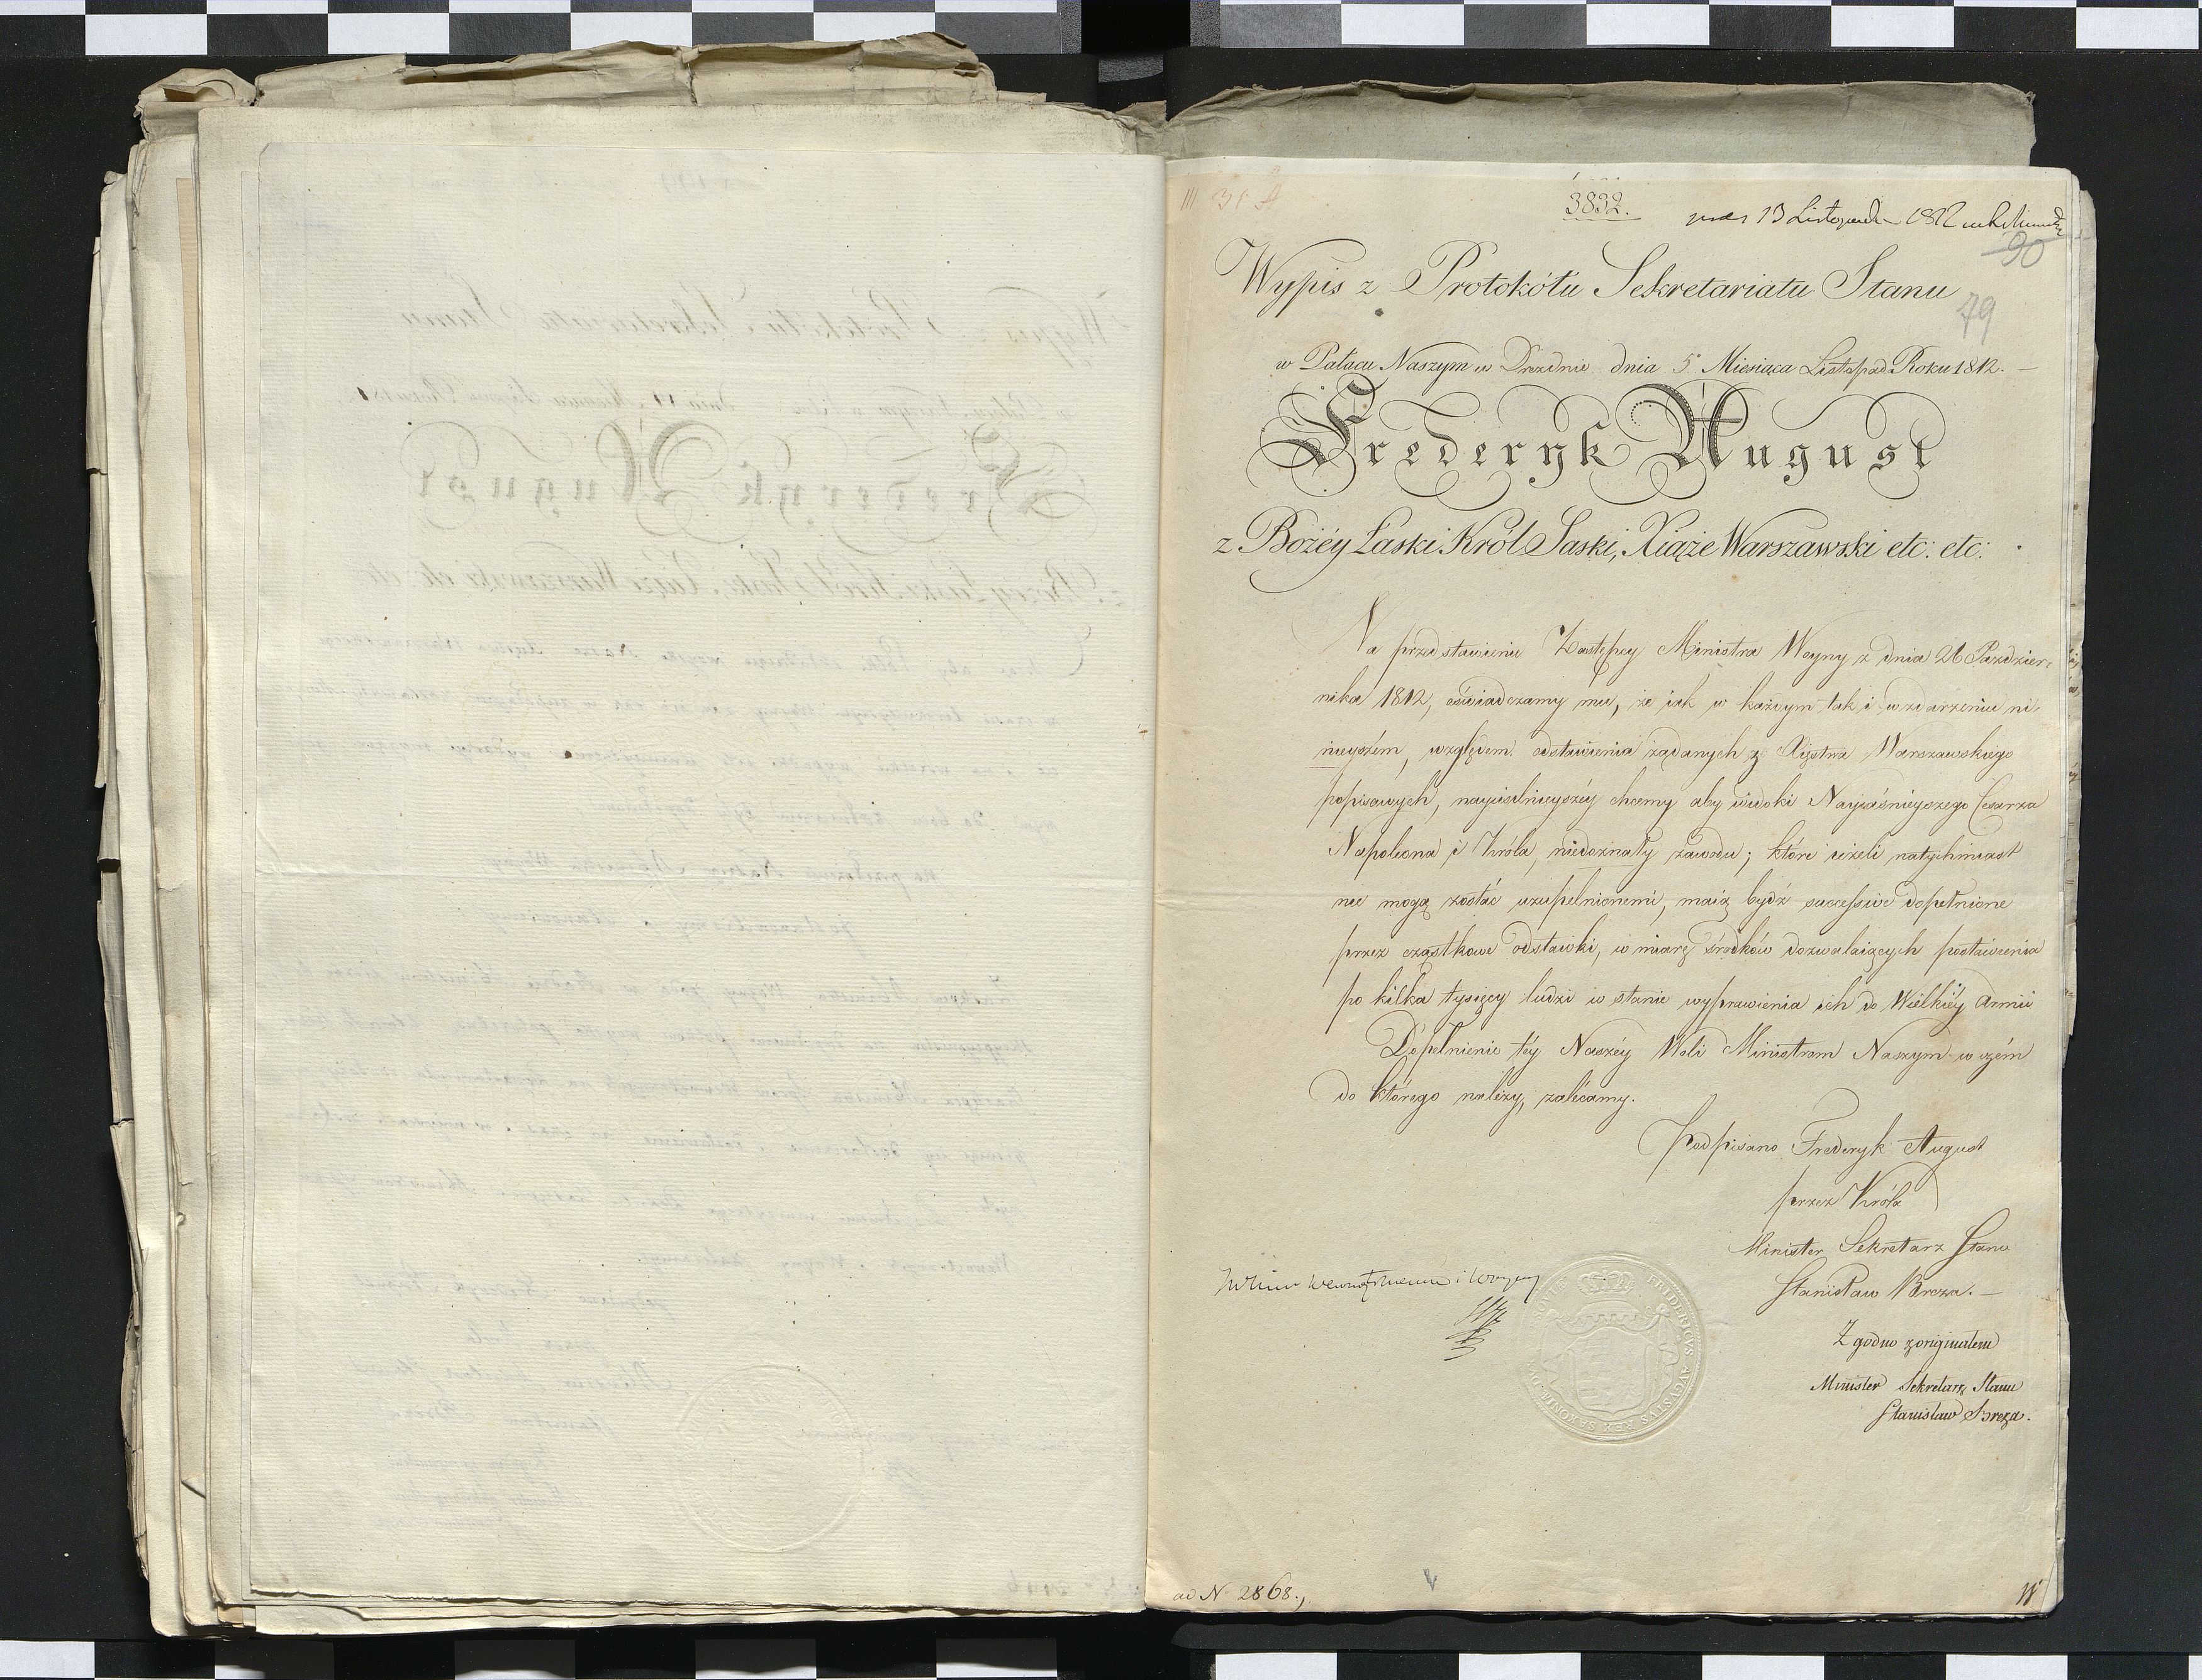 III 31 A
3832.
13 Listopada 1812
90
Wypis z Protokółu Sekretariatu Stanu
79
w Pałacu Naszym w Dreznie dnia 5 Miesiąca Listopada Roku 1812. —
Frederyk August
z Bożéy Łaski Król Saski, Xiąże Warszawski etc: etc:
Na przedstawienie Zastępcy Ministra Woyny z dnia 26 Paździer-
nika 1812, oświadczamy mu, że iak w każdym tak i w zdarzeniu ni-
nieyszém, względem odstawienia żądanych z Xięstwa Warszawskiego
popisowych, nayusilnieyszéy chcemy aby widoki Nayjaśnieyszego Cesarza
Napoleona i Króla, niedoznały zawodu; które ieżeli natychmiast
nie mogą zostać uzupełnionemi, maią bydź successive dopełnione
przez cząstkowe odstawki, w miarę środków dozwalaiących postawienia
po kilka tysięcy ludzi w stanie wyprawienia ich do Wielkiéy Armii
Dopełnienie téy Naszéy Woli Ministrom Naszym w czém
do którego należy, zalécamy.
Podpisano Frederyk August
przez Króla
Minister Sekretarz Stanu
Stanisław Breza. —
i Woyny
FRIDERICVS AVGVSTVS REX SAXONIAE
Zgodno z originałem
Minister Sekretarz Stanu
Stanisław Breza.
ad N 2868.,